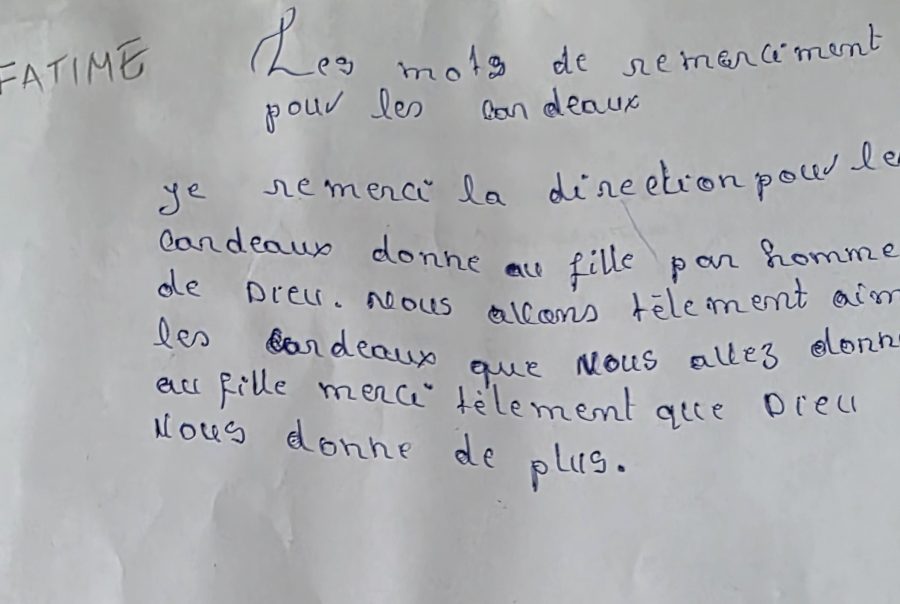 FATIME Les mots de remerciment
pour les cardeaux
ye remerci la direction pour le
cardeaux donne au fille par homme
de Dieu. Nous alcons tèlement aim
les cardeaux que Nous allez donn
au fille merci tèlement que Dieu
Nous donne de plus.